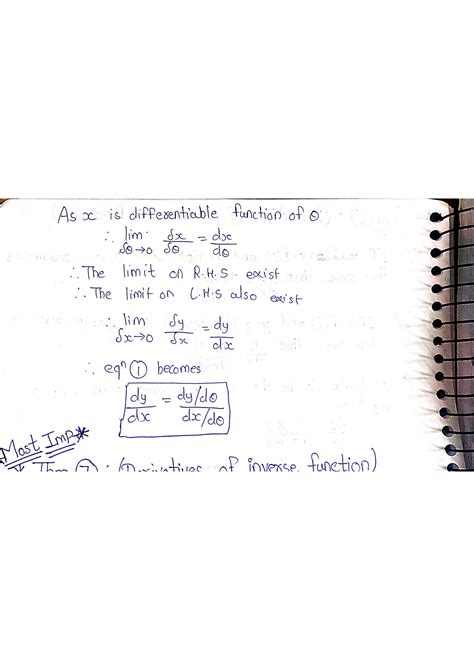 As x is differentiable function of θ
∴ lim δθ→0 δx/δθ = dx/dθ
∴ The limit on R.H.S exist
∴ The limit on L.H.S also exist
∴ lim δx→0 δy/δx = dy/dx
∴ eqⁿ ① becomes
dy/dx = dy/dθ / dx/dθ
Most Imp*
* Thm ⑦ : (Derivatives of inverse function)